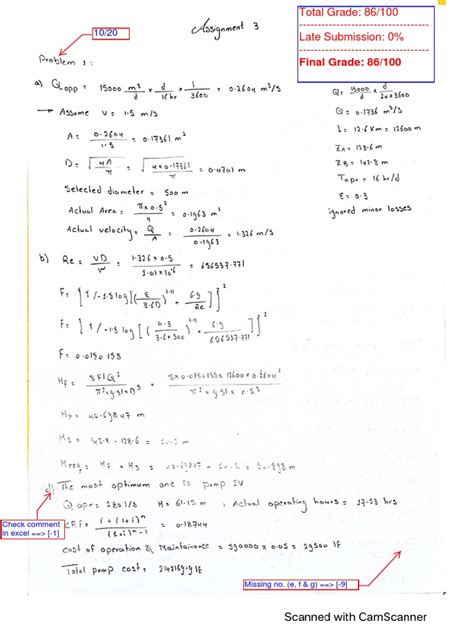 10/20
Assignment 3
Total Grade: 86/100
Late Submission: 0%
Final Grade: 86/100
Problem 1 :
a) Qopp = 15000 m³/d × d/16 hr × 1/3600 = 0.2604 m³/s
→ Assume V = 1.5 m/s
A = 0.2604/1.5 = 0.17361 m²
D = √(4A/π) = √(4×0.17361/π) = 0.4701 m
Selected diameter = 500 m
Actual Area = π×0.5²/4 = 0.1963 m²
Actual velocity = Q/A = 0.2604/0.1963 = 1.326 m/s
Q = 15000/d × d/24×3600
Q = 0.1736 m³/s
L = 12.6 Km = 12600 m
ZA = 128.6 m
ZB = 142.8 m
Topr = 16 hr/d
ε = 0.3
ignored minor losses
b) Re = VD/ν = 1.326 × 0.5/1.01×10⁻⁶ = 656537.771
F = [1/-1.8 log[(ε/3.6D)^1.11 + 6.9/Re]]²
F = [1/-1.8 log[(0.3/3.6×500)^1.11 + 6.9/656537.771]]²
HF = 8FLQ²/π²×g.81×D⁵
c) The most optimum one is pump IV
H = 61.15 m , Actual operating hours = 17.23 hrs
CRF = i(1+i)ⁿ/(1+i)ⁿ-1 = 0.18744
cost of operation & Maintainance = 590000 × 0.05 = 29500 LE
Total pump cost =
Check comment
in excel ==> [-1]
Missing no. (e, f & g) ==> [-9]
Scanned with CamScanner